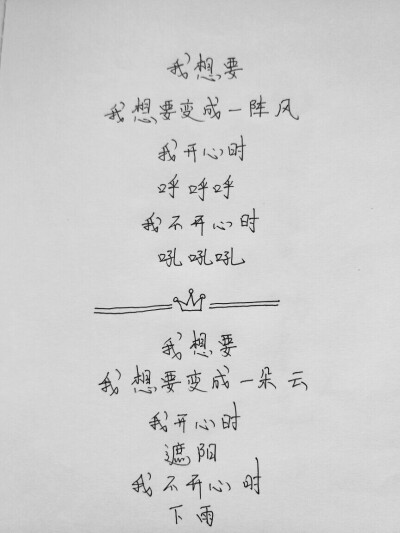 我想要
我想要变成一阵风
我开心时
呼呼呼
我不开心时
吼吼吼
我想要
我想要变成一朵云
我开心时
遮阳
我不开心时
下雨